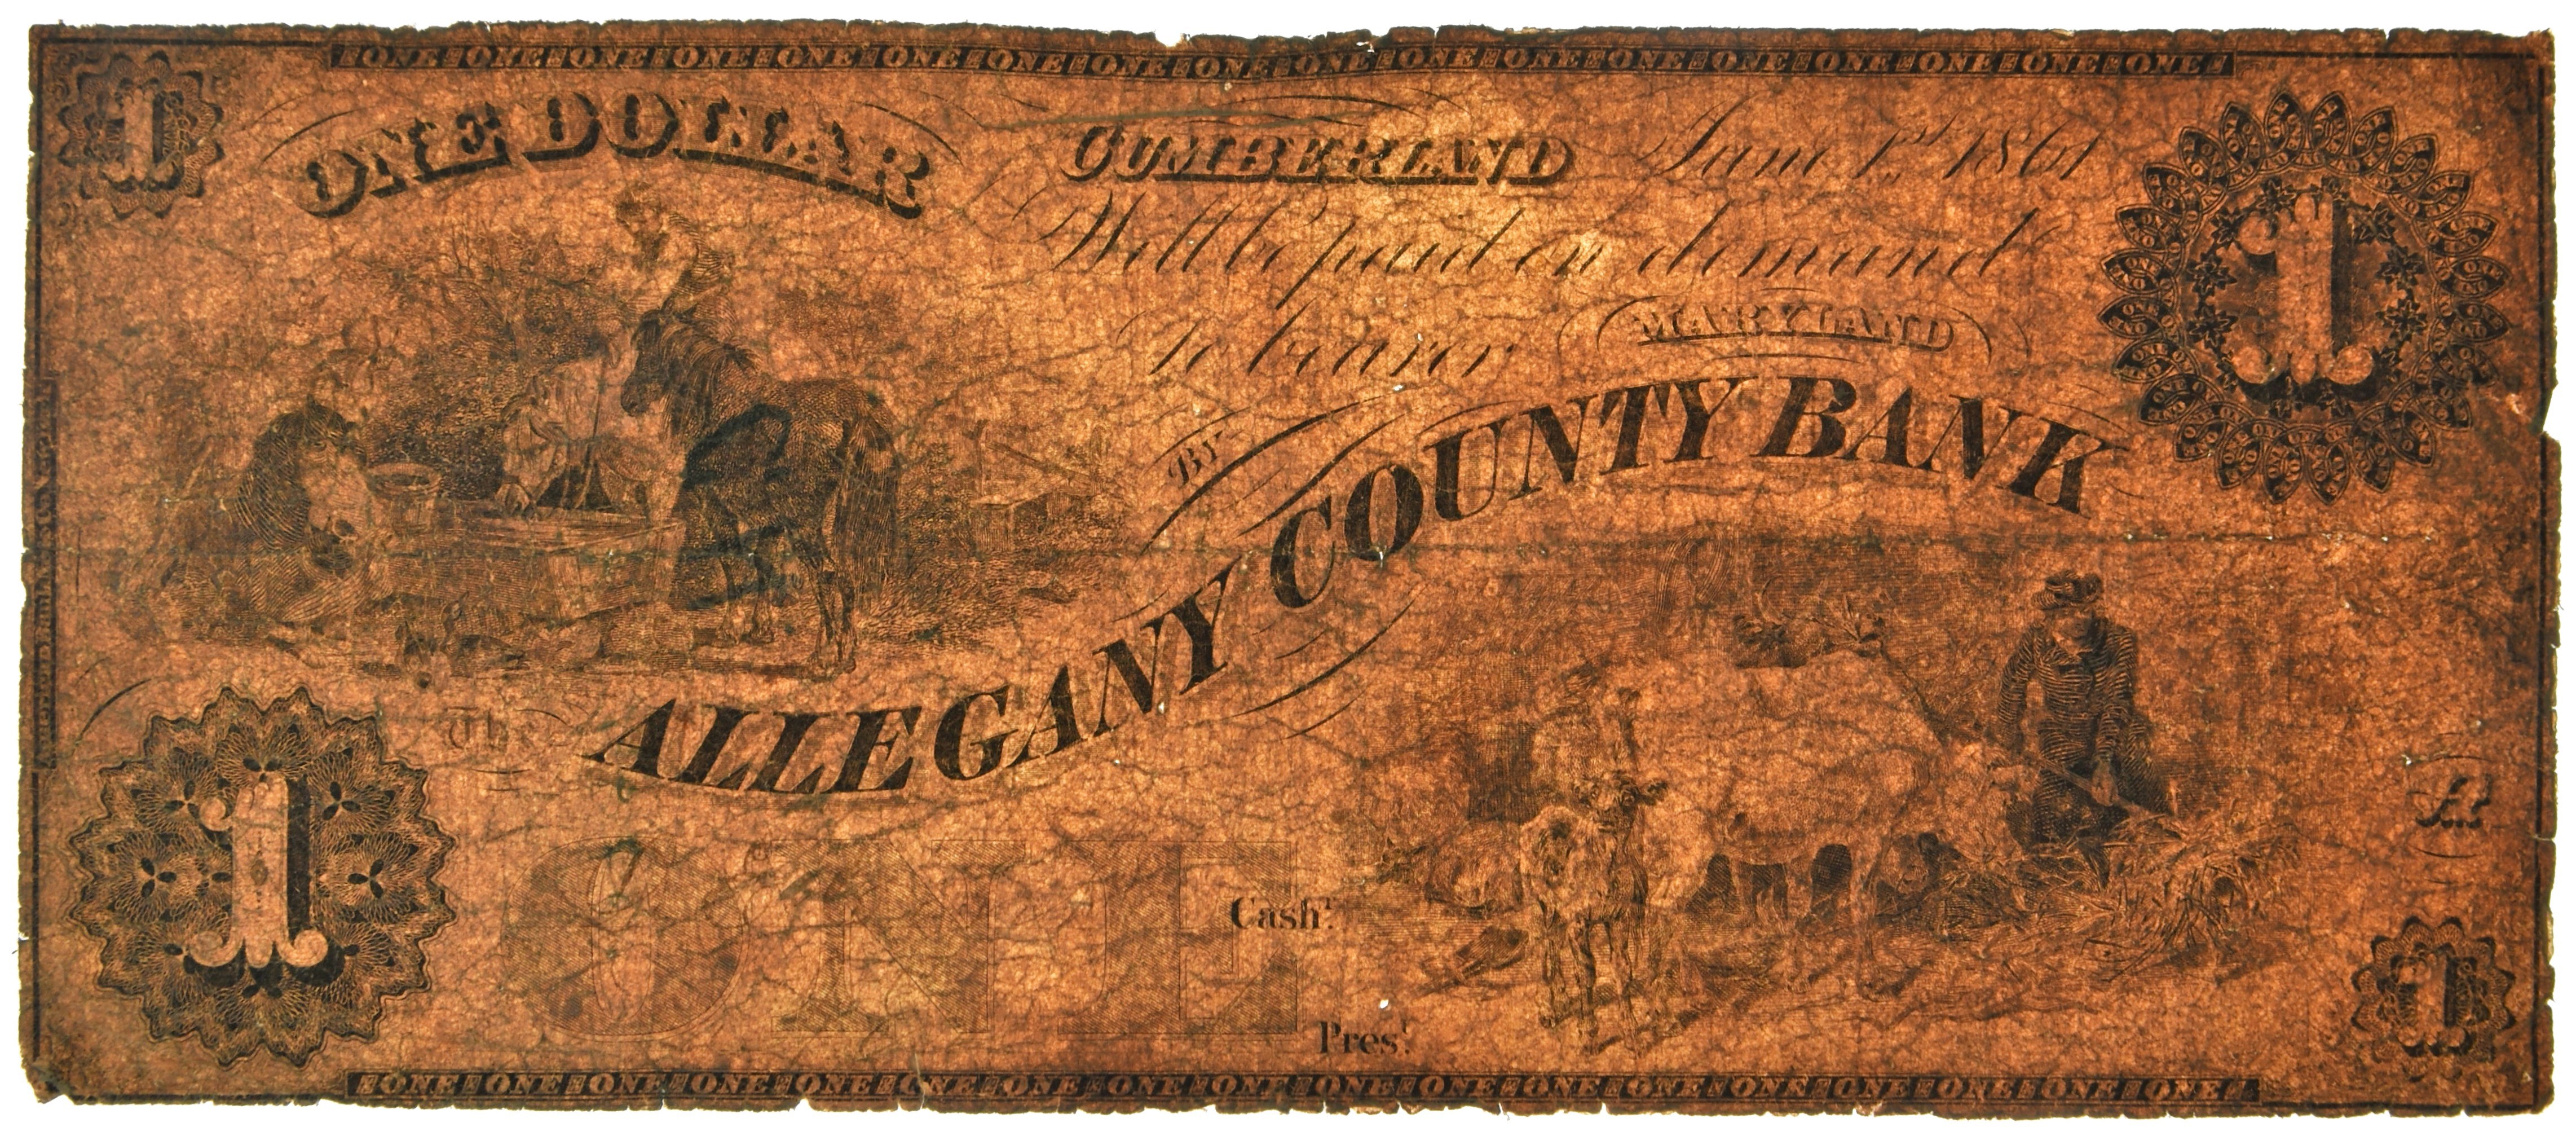 ONE ONE ONE ONE ONE ONE ONE ONE ONE ONE ONE ONE ONE ONE ONE ONE ONE ONE
1
ONE DOLLAR
CUMBERLAND June 1st, 1861
1
Will be paid on demand
to bearer
MARYLAND
BY
The ALLEGANY COUNTY BANK
1
ONE
A
Cashr.
Prest.
1
ONE ONE ONE ONE ONE ONE ONE ONE ONE ONE ONE ONE ONE ONE ONE ONE ONE ONE